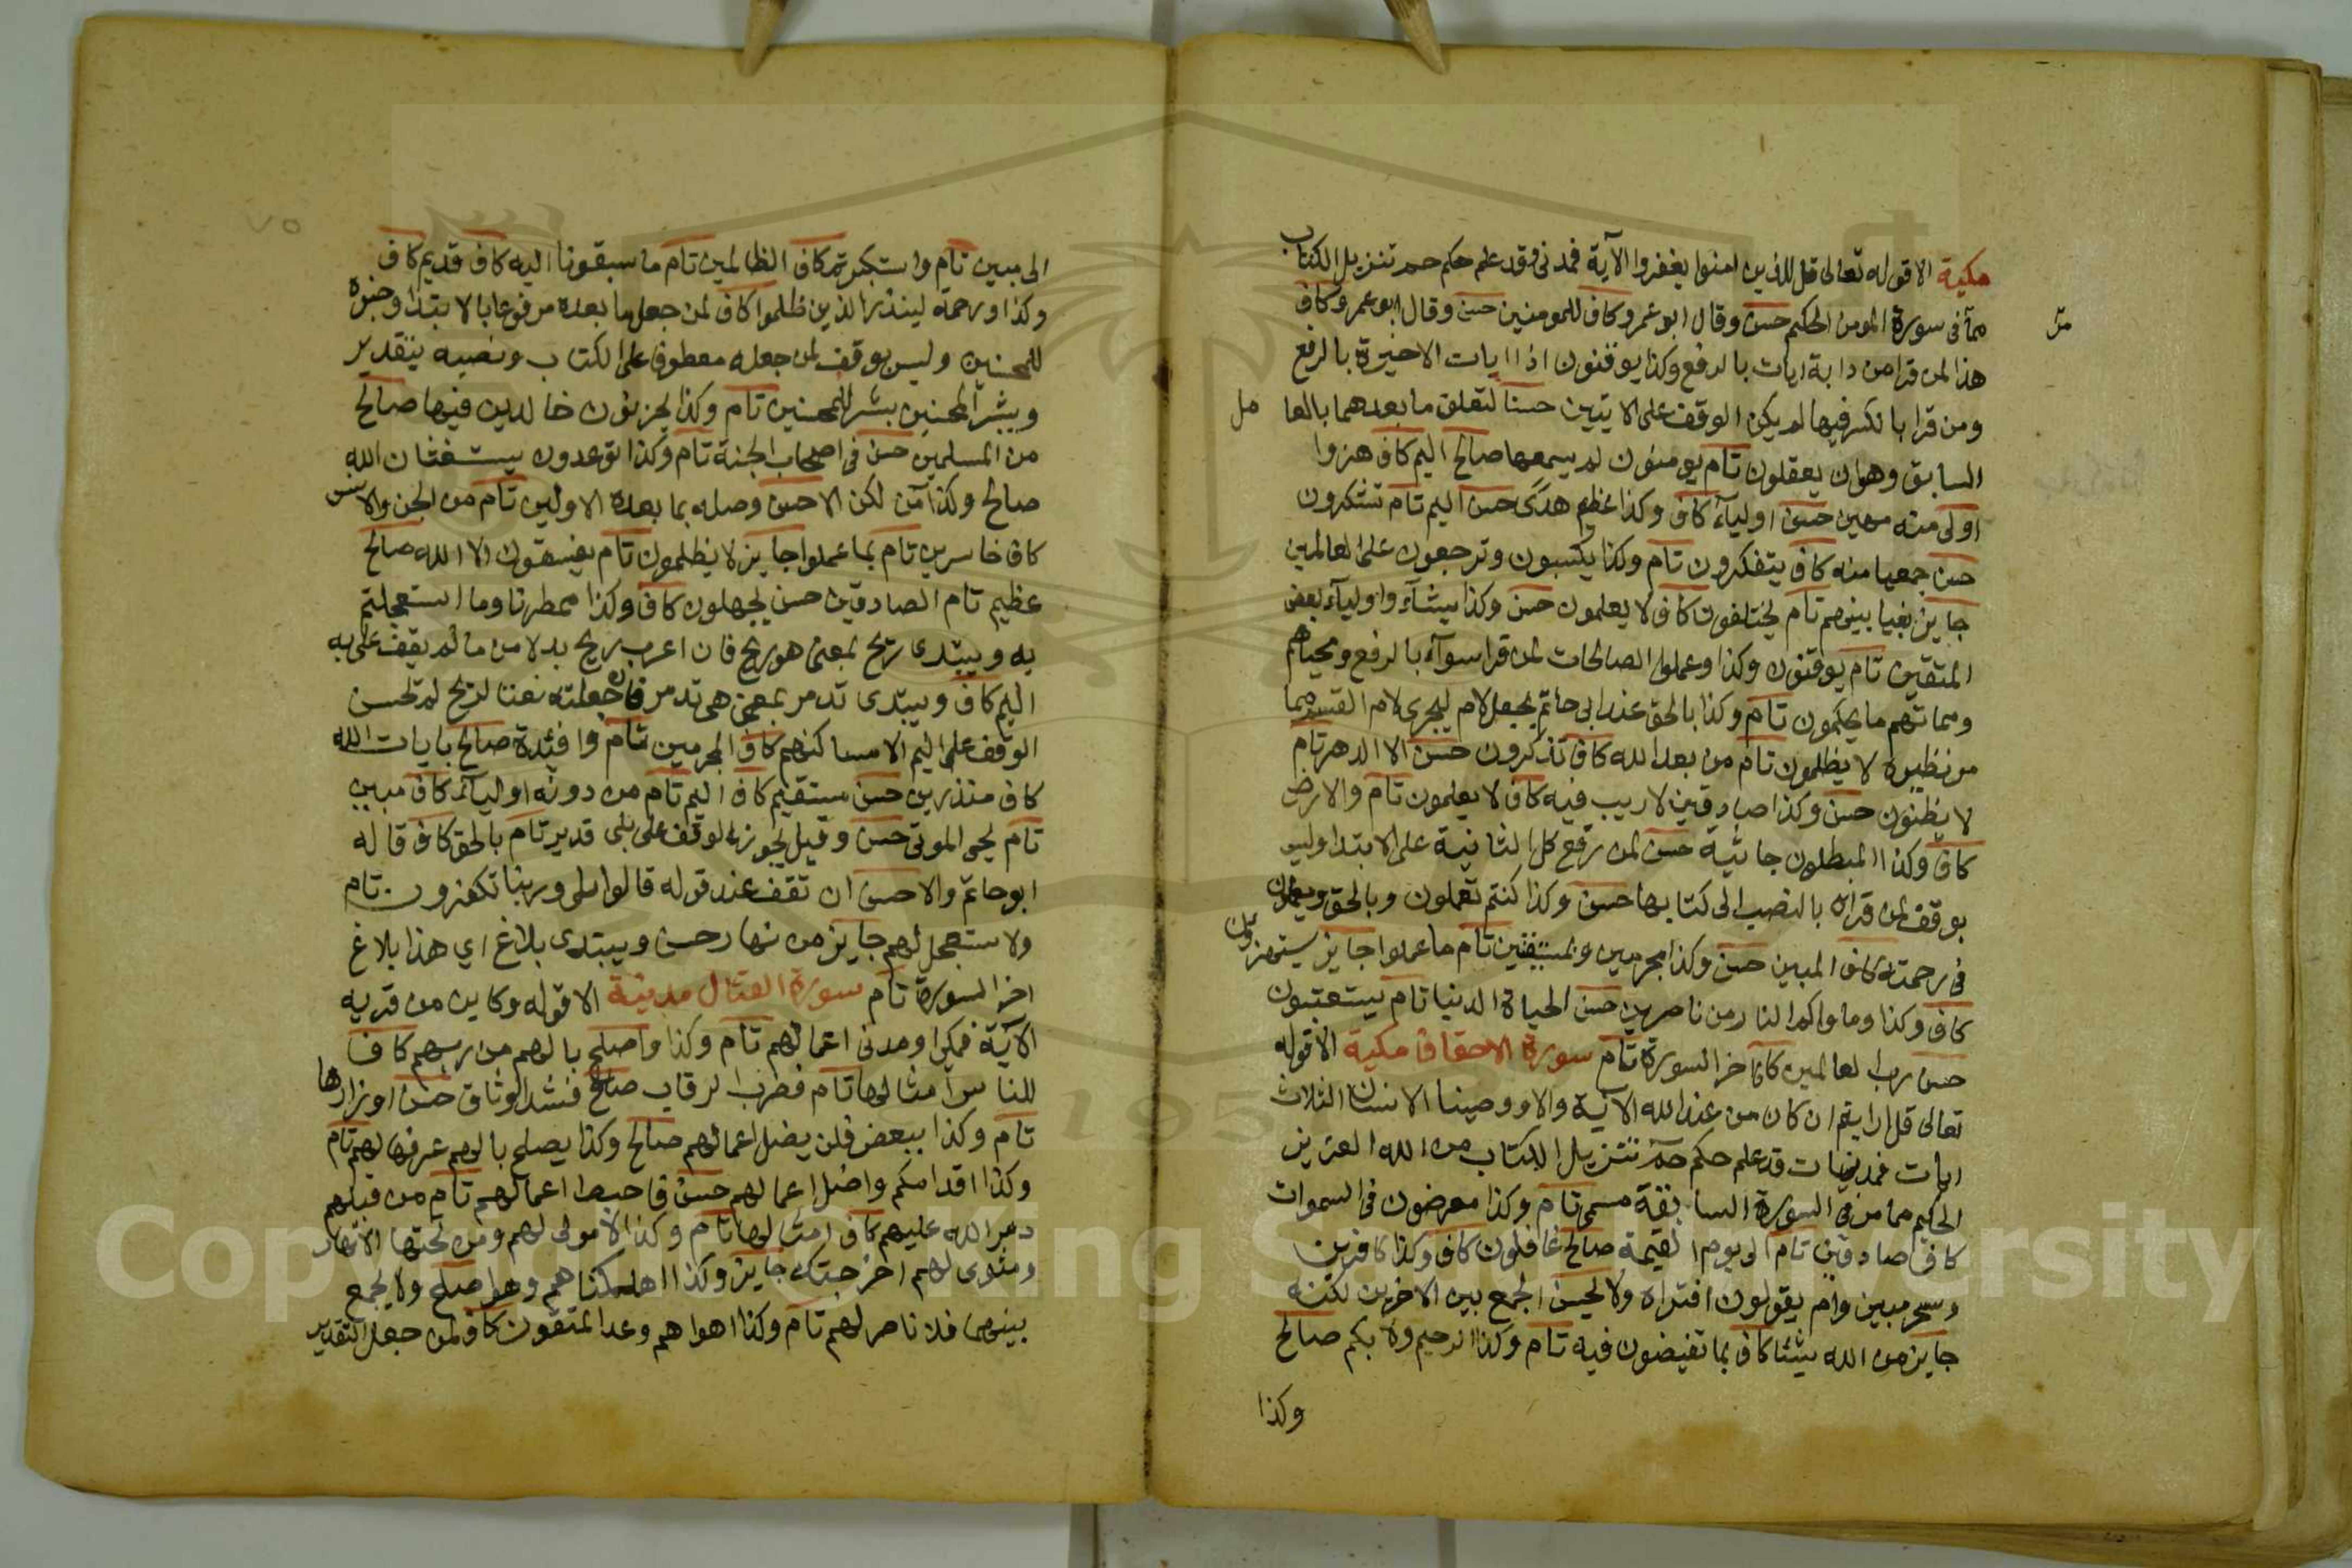 مكية الا قوله تعالى قل للذين امنوا يغفروا الآية فمدني وقد علم حكم حم تنزيل الكتاب
مما في سورة المومن الحكيم حسن وقال ابو عمرو كاف للمومنين حسن وقال ابو عمرو كاف
هذا لمن قرا من دابة ايات بالرفع وكذا يوقنون اذا ايات الاخيرة بالرفع
ومن قرا بالكسر فيها لم يكن الوقف على الايتين حسنا لتعلق ما بعدهما بالعا
مل
السابق وهو ان يعقلون تام يومنون لم يسمعها صالح اليم كاف هزوا
اولى منه مهين حسن اولياء كاف وكذا عظيم هدى حسن اليم تام تشكرون
حسن جميعا منه كاف يتفكرون تام وكذا يكسبون وترجعون على العالمين
جايز بغيا بينهم تام يختلفون كاف لا يعلمون حسن وكذا شيئا واولياء بعض
المتقين تام يوقنون وكذا وعملوا الصالحات لمن قرا سواء بالرفع ومحياهم
ومماتهم ما يحكمون تام وكذا بالحق عند ابي حاتم بجعل لام ليجزى لام القسم كما
مر نظيره لا يظلمون تام من بعد الله كاف تذكرون حسن الا الدهر تام
لا يظنون حسن وكذا صادقين لا ريب فيه كاف لا يعلمون تام والارض
كاف وكذا المبطلون جاثية حسن لمن رفع كل الثانية على الابتدا وليس
بوقف لمن قراه بالنصب الى كتابها حسن وكذا كنتم تعملون وبالحق وتعملون
في رحمته كاف المبين حسن وكذا مجرمين وبمستيقنين تام ما عملوا جايز يستهزؤن
كاف وكذا وماواكم النار من ناصرين حسن الحياة الدنيا تام يستعتبون
حسن رب العالمين كاف اخر السورة تام سورة الاحقاف مكية الا قوله
تعالى قل ارايتم ان كان من عند الله الاية والا ووصينا الانسان الثلاث
ايات فمدنيات قد علم حكم حم تنزيل الكتاب من الله العزيز
الحكيم مما مر في السورة السابقة مسمى تام وكذا معرضون في السموات
كاف صادقين تام الى يوم القيمة صالح غافلون كاف وكذا كافرين
وسحر مبين وام يقولون افتراه ولا يحسن الجمع بين الاخرين لكنه
جايز من الله شيئا كاف بما تفيضون فيه تام وكذا الرحيم ولا بكم صالح
وكذا
٧٥
الى مبين تام واستكبرتم كاف الظالمين تام ما سبقونا اليه كاف قديم كاف
وكذا ورحمة لينذر الذين ظلموا كاف لمن جعل ما بعده مرفوعا بالابتداء وخبره
للمحسنين وليس بوقف لمن جعله معطوفا على الكتاب ونصبه بتقدير
ويبشر المحسنين بشرا للمحسنين تام وكذا يحزنون خالدين فيها صالح
من المسلمين حسن في اصحاب الجنة تام وكذا توعدون يستغثان الله
صالح وكذا آمن لكن الاحسن وصله بما بعده الاولين تام من الجن والانس
كاف خاسرين تام بما عملوا جايز لا يظلمون تام يفسقون الا الله صالح
عظيم تام الصادقين حسن تجهلون كاف وكذا ممطرنا وما استعجلتم
به ويبتدى ريح بمعنى هو ريح فان اعرب ريح بدلا من ما لم يقف على به
اليم كاف ويبتدى تدمر بمعنى هي تدمر فان جعلته نعتا لريح لم تحسن
الوقف على اليم الا مساكنهم كاف المجرمين تام وافئدة صالح بايات الله
كاف منذرين حسن مستقيم كاف اليم تام من دونه اولياء كاف مبين
تام يحيى الموتى حسن وقيل يجوز الوقف على بلى قدير تام بالحق كاف قاله
ابو حاتم والاحسن ان تقف عند قوله قالوا بلى وربنا تكفرون تام
ولا ستعجل لهم جايز من نهار حسن ويبتدى بلاغ اي هذا بلاغ
اخر السورة تام سورة القتال مدنية الا قوله وكاين من قرية
الآية فمكي او مدني اعمالهم تام وكذا واصلح بالهم من ربهم كاف
للناس امثالها تام فضرب الرقاب صالح فشد الوثاق حسن اوزارها
تام وكذا ببعض فلن يضل اعمالهم صالح وكذا يصلح بالهم عرفها لهم تام
وكذا اقدامكم واضل اعمالهم حسن فاحبط اعمالهم تام من قبلهم
دمر الله عليهم كاف امثالها تام وكذا لا مولى لهم ومن تحتها الانهار
ومثوى لهم اخرجتك جايز وكذا اهلكناهم وهو اصلح ولا يجمع
بينهما فلا ناصر لهم تام وكذا اهواهم وعد المتقون كاف لمن جعل التقدير
Copyright © King Saud University
1957